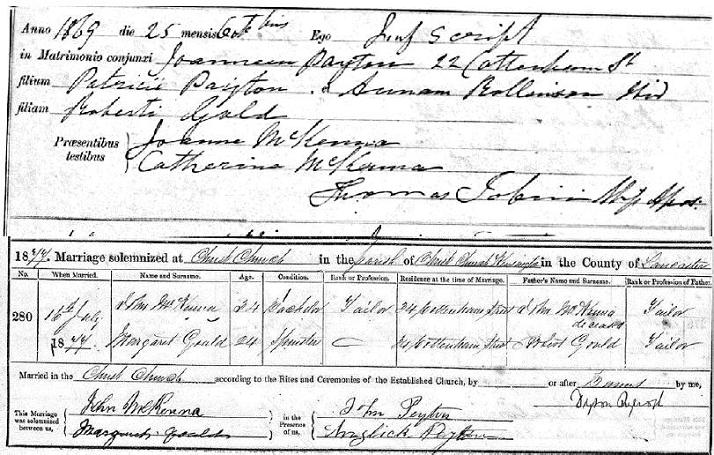 Anno 1869 die 25 mensis Ego Inf Script
in Matrimonio conjunxi Joannem Payton 22 Cottenham St
filium Patricii Payton et Annam Rollenson Ibid
filiam Roberti Gold
Præsentibus testibus Joanne McKenna
Catherina McKenna
Thomas Tobin
1877. Marriage solemnized at Christ Church in the parish of Christ Church in the County of Lancaster
No. When Married. Name and Surname. Age. Condition. Rank or Profession. Residence at the time of Marriage. Father's Name and Surname. Rank or Profession of Father.
280 July John McKenna 34 Bachelor Tailor 24 Cottenham Street John McKenna deceased Tailor
1877 Margaret Gould 24 Spinster — 24 Cottenham Street Robert Gould Tailor
Married in the Christ Church according to the Rites and Ceremonies of the Established Church, by or after Banns by me,
This Marriage was solemnized between us, John McKenna in the Presence of us, John Peyton
Margaret Gould Peyton